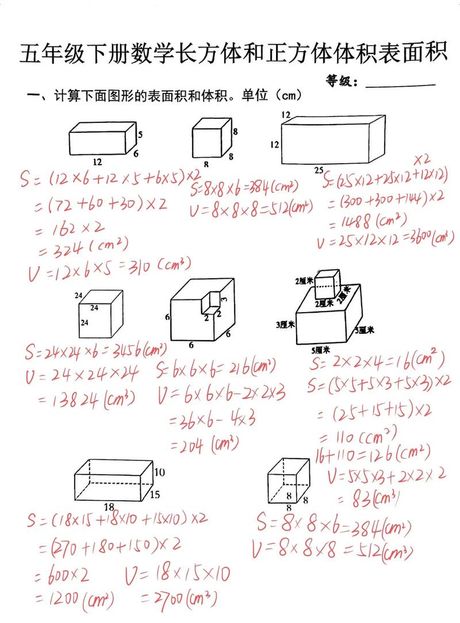 五年级下册数学长方体和正方体体积表面积
等级:
一、计算下面图形的表面积和体积。单位（cm）
5
12
6
8
8
8
12
12
25
S=(12×6+12×5+6×5)×2
=(72+60+30)×2
=162×2
=324(cm²)
V=12×6×5=310(cm³)
S=8×8×6=384(cm²)
V=8×8×8=512(cm³)
S=(25×12+25×12+12×12)×2
=(300+300+144)×2
=1488(cm²)
V=25×12×12=3600(cm³)
24
24
24
3
2
2
6
6
6
2厘米
2厘米
2厘米
3厘米
5厘米
5厘米
S=24×24×6=3456(cm²)
V=24×24×24
=13824(cm³)
S=6×6×6=216(cm²)
V=6×6×6-2×2×3
=36×6-4×3
=204(cm³)
S=2×2×4=16(cm²)
S=(5×5+5×3+5×3)×2
=(25+15+15)×2
=110(cm²)
16+110=126(cm²)
V=5×5×3+2×2×2
=83(cm³)
10
15
18
8
8
8
S=(18×15+18×10+15×10)×2
=(270+180+150)×2
=600×2
=1200(cm²)
V=18×15×10
=2700(cm³)
S=8×8×6=384(cm²)
V=8×8×8=512(cm³)